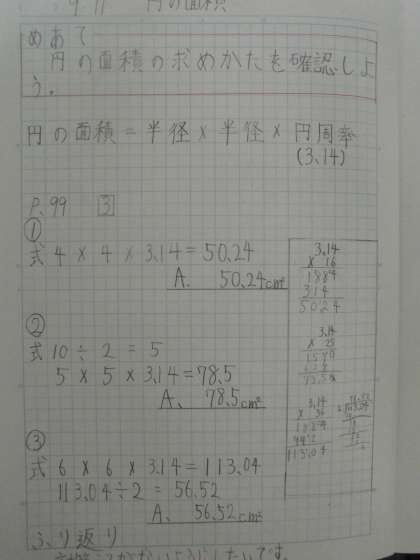 9.11 円の面積
めあて
円の面積の求めかたを確認しよ
う.
円の面積=半径×半径×円周率
(3.14)
P.99 3
①
式 4×4×3.14=50.24
A. 50.24cm²
②
式 10÷2=5
5×5×3.14=78.5
A. 78.5cm²
③
式 6×6×3.14=113.04
113.04÷2=56.52
A. 56.52cm²
ふり返り
3.14
× 16
1884
314
5024
3.14
× 25
1570
3.14
× 36
1884
942
11304